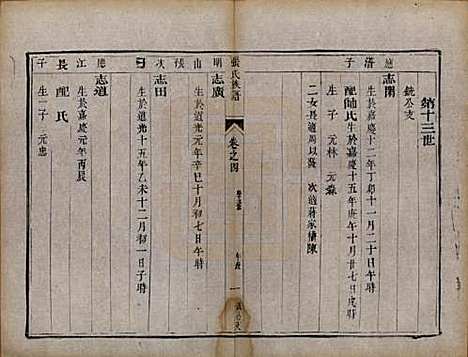 第十三世
銑公支
應清子
志開
生於嘉慶十二年丁卯十一月二十日未時
配師氏生於嘉慶十五年庚午十月廿七日戌時
生子元林元森
二女長適周以
次適蔣家
張氏族譜
卷之四
一
明山
志廣
生於道光十年辛巳十月初七日午時
次子
志田
生於道光十五年乙未十二月初一日子時
應江長子
志道
生於嘉慶元年丙辰
配氏
生一子元忠